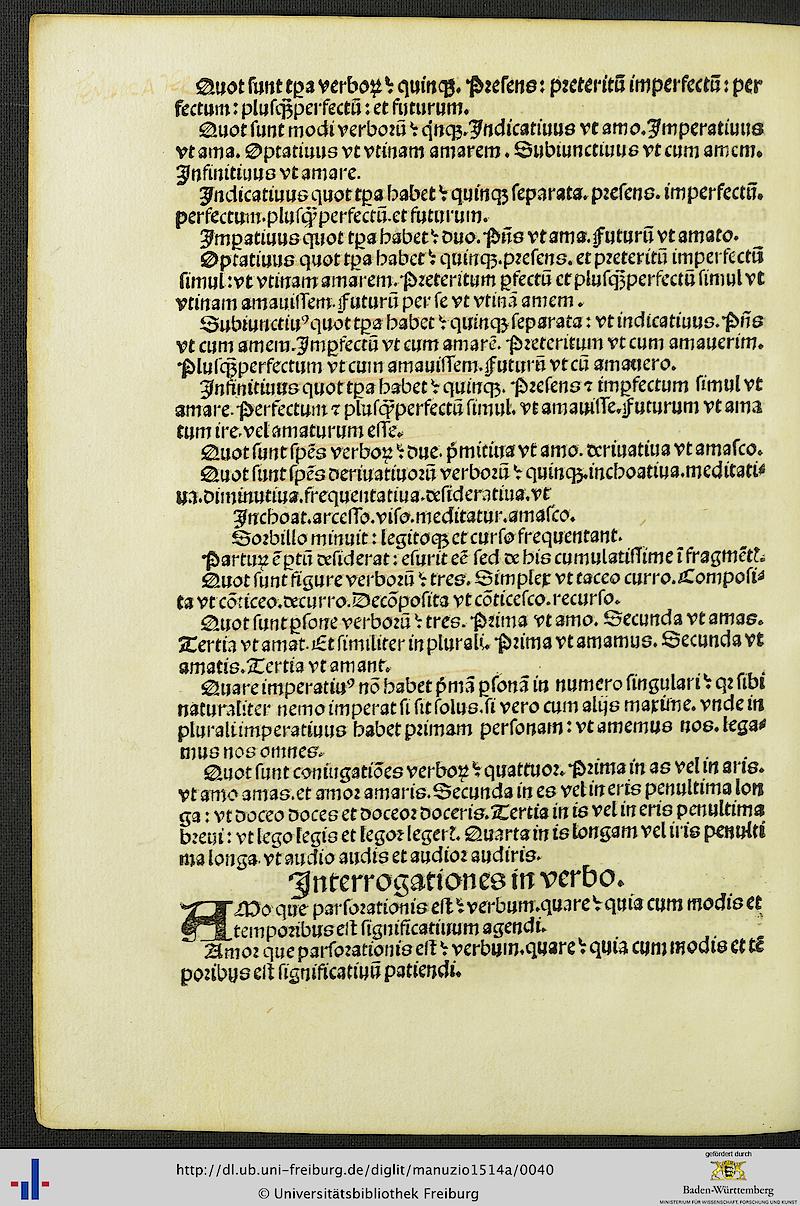 Quot sunt tꝑa verboꝝ: quinqꝫ. Presens: preteritū imperfectū: per
fectum: plusq̈ꝫperfectū: et futurum.
Quot sunt modi verborū: q̇nqꝫ. Indicatiuus vt amo. Imperatiuus
vt ama. Optatiuus vt vtinam amarem. Subiunctiuus vt cum amem.
Infinitiuus vt amare.
Indicatiuus quot tꝑa habet: quinqꝫ separata. presens. imperfectū.
perfectum. plusq̈ꝫperfectū. et futurum.
Impatiuus quot tꝑa habet: duo. Pn̄s vt ama. Futurū vt amato.
Optatiuus quot tꝑa habet: quinqꝫ. presens. et preteritū imperfectū
simul: vt vtinam amarem. Preteritum ꝑfectū et plusq̈ꝫperfectū simul vt
vtinam amauissem. Futurū per se vt vtinā amem.
Subiunctiuꝰ quot tꝑa habet: quinqꝫ separata: vt indicatiuus. Pn̄s
vt cum amem. Imꝑfectū vt cum amarē. Preteritum vt cum amauerim.
Plusq̈ꝫperfectum vt cum amauissem. Futurū vt cū amauero.
Infinitiuus quot tꝑa habet: quinqꝫ. Presens ⁊ imꝑfectum simul vt
amare. Perfectum ⁊ plusq̈ꝫperfectū simul. vt amauisse. Futurum vt ama
tum ire. vel amaturum esse.
Quot sunt spēs verboꝝ: due. p̄mitiua vt amo. deriuatiua vt amasco.
Quot sunt spēs deriuatiuorū verborū: quinqꝫ. inchoatiua. meditati⸗
ua. diminutiua. frequentatiua. desideratiua. vt
Inchoat. arcesso. viso. meditatur. amasco.
Sorbillo minuit: legitoqꝫ et curso frequentant.
Parturꝫ ē ꝑtū desiderat: esurit eē sed de his cumulatissime ī fragmētꝭ.
Quot sunt figure verborū: tres. Simplex vt taceo curro. Composi⸗
ta vt cōticeo. decurro. Decōposita vt cōticesco. recurso.
Quot sunt ꝑsone verborū: tres. Prima vt amo. Secunda vt amas.
Tertia vt amat. Et similiter in plurali. Prima vt amamus. Secunda vt
amatis. Tertia vt amant.
Quare imperatiuꝰ nō habet p̄mā ꝑsonā in numero singulari: qꝛ sibi
naturaliter nemo imperat si sit solus. si vero cum alijs maxime. vnde in
plurali imperatiuus habet primam personam: vt amemus nos. lega⸗
mus nos omnes.
Quot sunt coniugatiōes verboꝝ: quattuor. Prima in as vel in aris.
vt amo amas. et amor amaris. Secunda in es vel in eris penultima lon
ga: vt doceo doces et doceor doceris. Tertia in is vel in eris penultima
breui: vt lego legis et legor legerꝭ. Quarta in is longam vel iris penulti
ma longa. vt audio audis et audior audiris.
Interrogationes in verbo.
AMo que pars orationis est: verbum. quare: quia cum modis et
temporibus est significatiuum agendi.
Amor que pars orationis est: verbum. quare: quia cum modis et tē
poribus est significatiuū patiendi.
http://dl.ub.uni-freiburg.de/diglit/manuzio1514a/0040
© Universitätsbibliothek Freiburg
gefördert durch
Baden-Württemberg
MINISTERIUM FÜR WISSENSCHAFT, FORSCHUNG UND KUNST